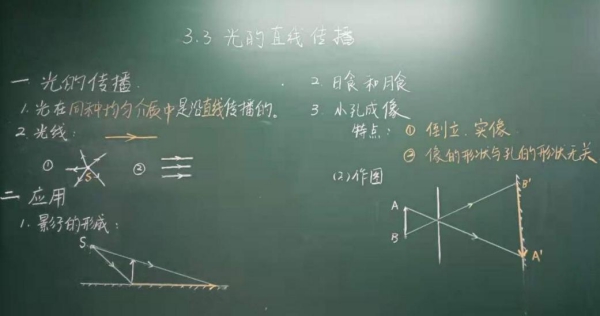 3.3 光的直线传播
一 光的传播.
1. 光在同种均匀介质中是沿直线传播的。
2. 光线:
① S ②
二 应用
1. 影子的形成:
S
2. 日食和月食
3. 小孔成像
特点: ① 倒立.实像
② 像的形状与孔的形状无关
(2)作图
A
B
B'
A'